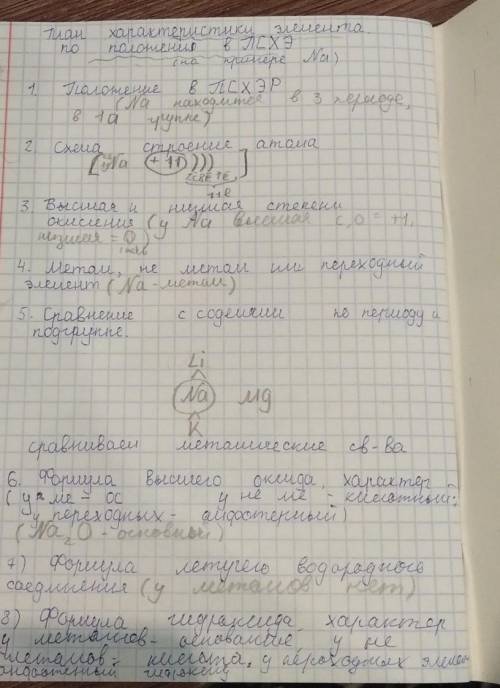 План характеристики элемента
по положению в ПСХЭ
(на примере Na)
1. Положение в ПСХЭР
(Na находится в 3 периоде,
в 1а группе)
2. Схема строение атома
Na +11 )))
2е 8е 1е
11е
3. Высшая и низшая степени
окисления (у Na высшая с,о = +1,
низшая = 0)
4. Метал, не метал или переходный
элемент (Na - метал)
5. Сравнение с соседями по периоду и
подгруппе.
Li
Na Mg
K
сравниваем металические св-ва
6. Формула высшего оксида, характер
(у ме = ос у не ме - кислотный;
у переходных - амфотерный)
(Na2O - основной)
7) Формула летучего водородного
соединения (у металов нет)
8) Формула гидроксида, характер
у металлов - основание у не
металов - кислота, у переходных элемен
амфотерный гидроксид